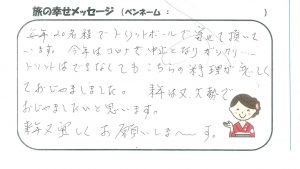 旅の幸せメッセージ (ペンネーム: )
毎年20名程でトリットボールで寄せて頂いて
います。今年はコロナで中止となりガックリ...
トリットはできなくてもこちらの料理が恋しく
ておじゃましました。来年は又、大勢で
おじゃましたいと思います。
来年又宜しくお願いしま〜す。